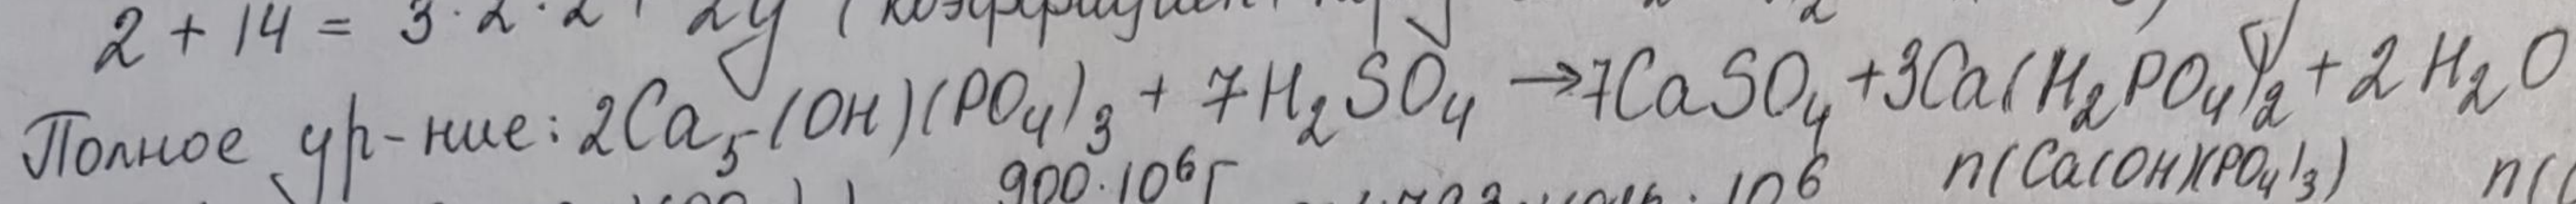 2 + 14 = 3·2·2 + 2y (коэффициент
Полное ур-ние: 2Ca₅(OH)(PO₄)₃ + 7H₂SO₄ → 7CaSO₄ + 3Ca(H₂PO₄)₂ + 2H₂O
900·10⁶г 10⁶ n(Ca(OH)(PO₄)₃) n(